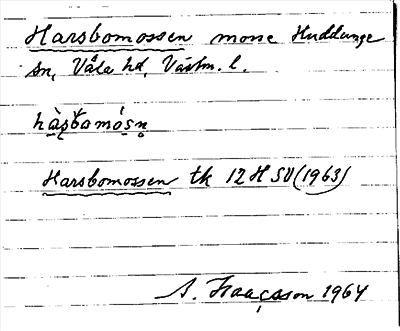 Harsbomossen mosse Huddunge
sn, Våla hd, Västm. l.
hàṣbomósn̥
Harsbomossen tk 12H SV (1963)
S. Isaacsson 1964